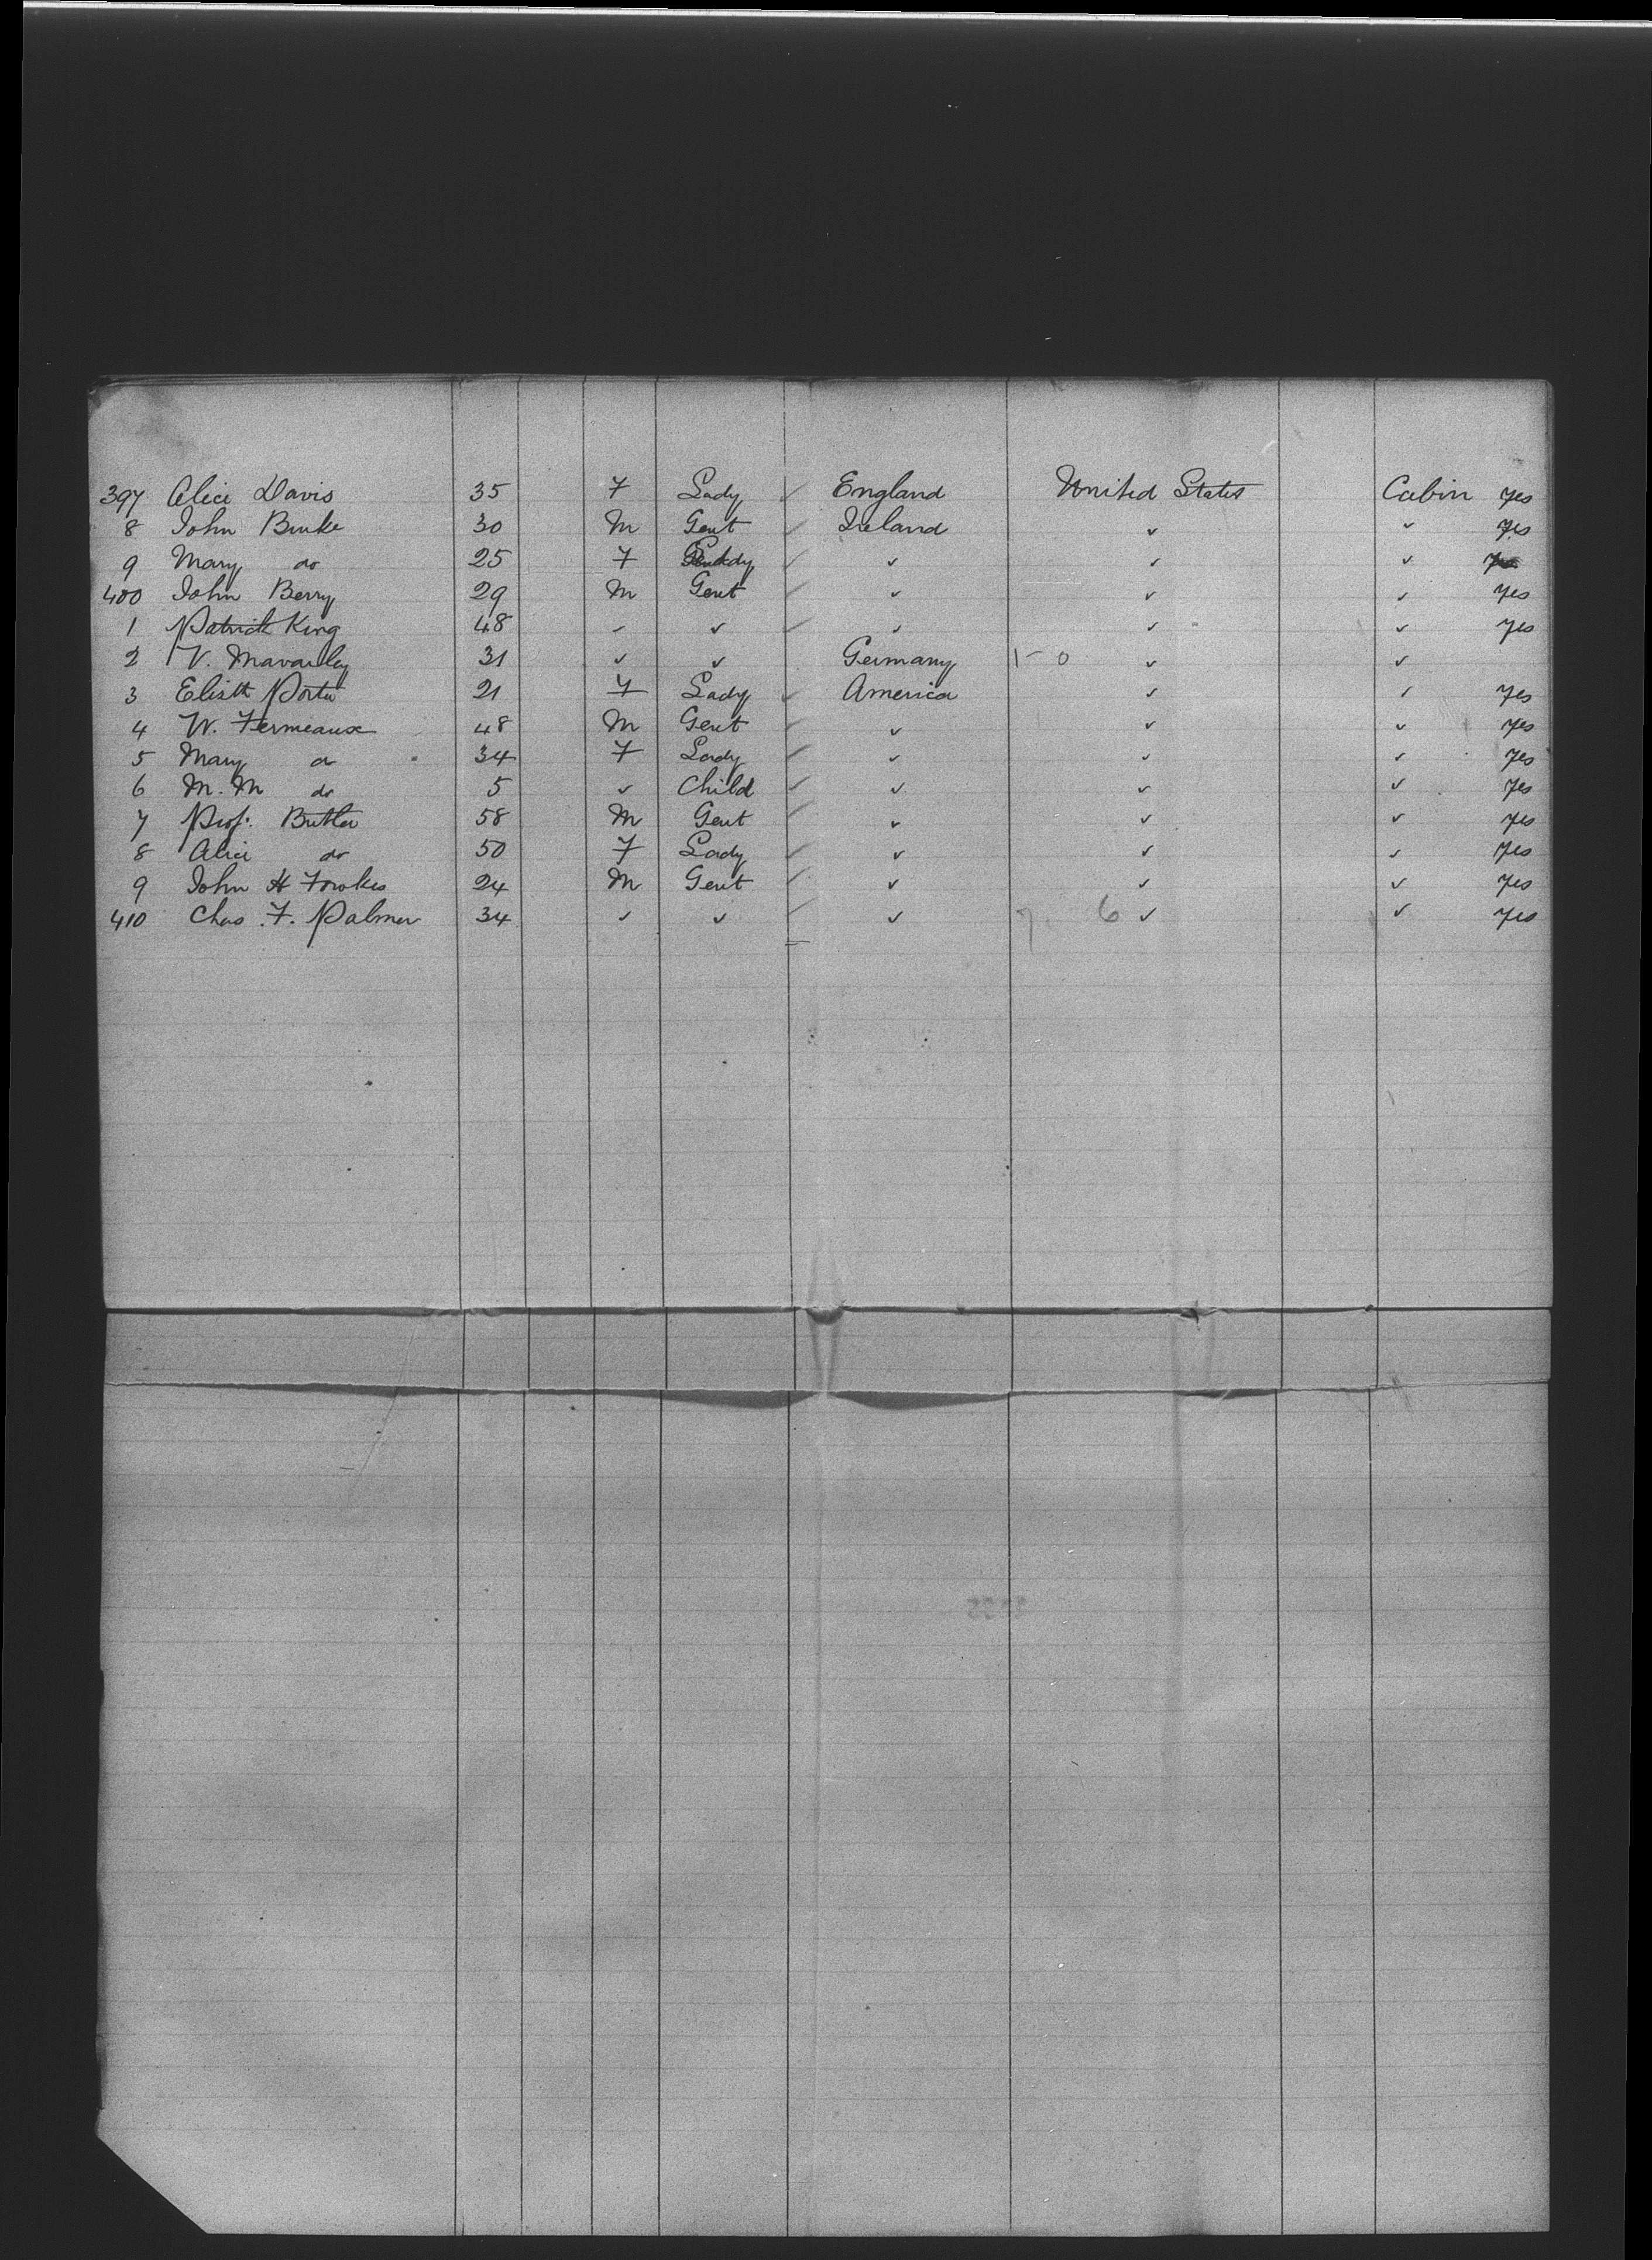 397 Alice Davis 35 F Lady ✓ England United States Cabin yes
8 John Burke 30 M Gent ✓ Ireland ✓ ✓ yes
9 Mary do 25 F Lady ✓ ✓ ✓ ✓ yes
400 John Berry 29 M Gent ✓ ✓ ✓ ✓ yes
1 Patrick King 48 ✓ ✓ ✓ ✓ ✓ ✓ yes
2 V. 31 ✓ ✓ Germany 1 - 0 ✓ ✓
3 Elisth Porter 21 F Lady ✓ America ✓ ✓ yes
4 W. Fermeaux 48 M Gent ✓ ✓ ✓ ✓ yes
5 Mary do 34 F Lady ✓ ✓ ✓ ✓ yes
6 M. M do 5 ✓ Child ✓ ✓ ✓ ✓ yes
7 Prof. Butler 58 M Gent ✓ ✓ ✓ ✓ yes
8 Alice do 50 F Lady ✓ ✓ ✓ ✓ yes
9 John H Fowkes 24 M Gent ✓ ✓ ✓ ✓ yes
410 Chas. F. Palmer 34 ✓ ✓ ✓ ✓ 7 6 ✓ ✓ yes